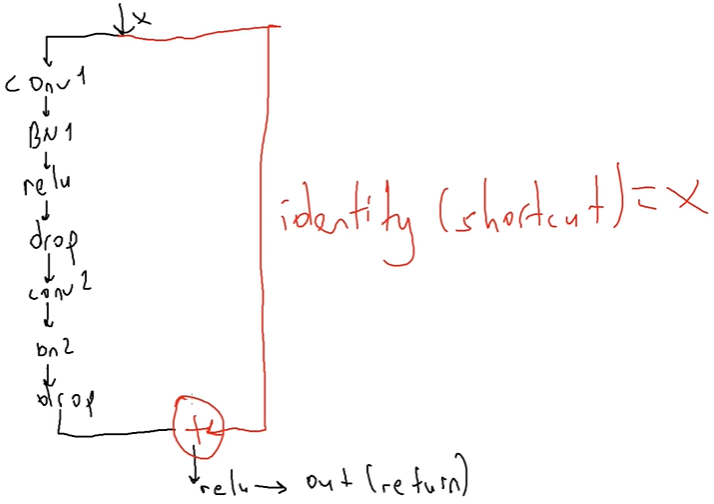 x
conv1
BN1
relu
drop
conv2
bn2
drop
identity (shortcut) = x
+
relu → out (return)